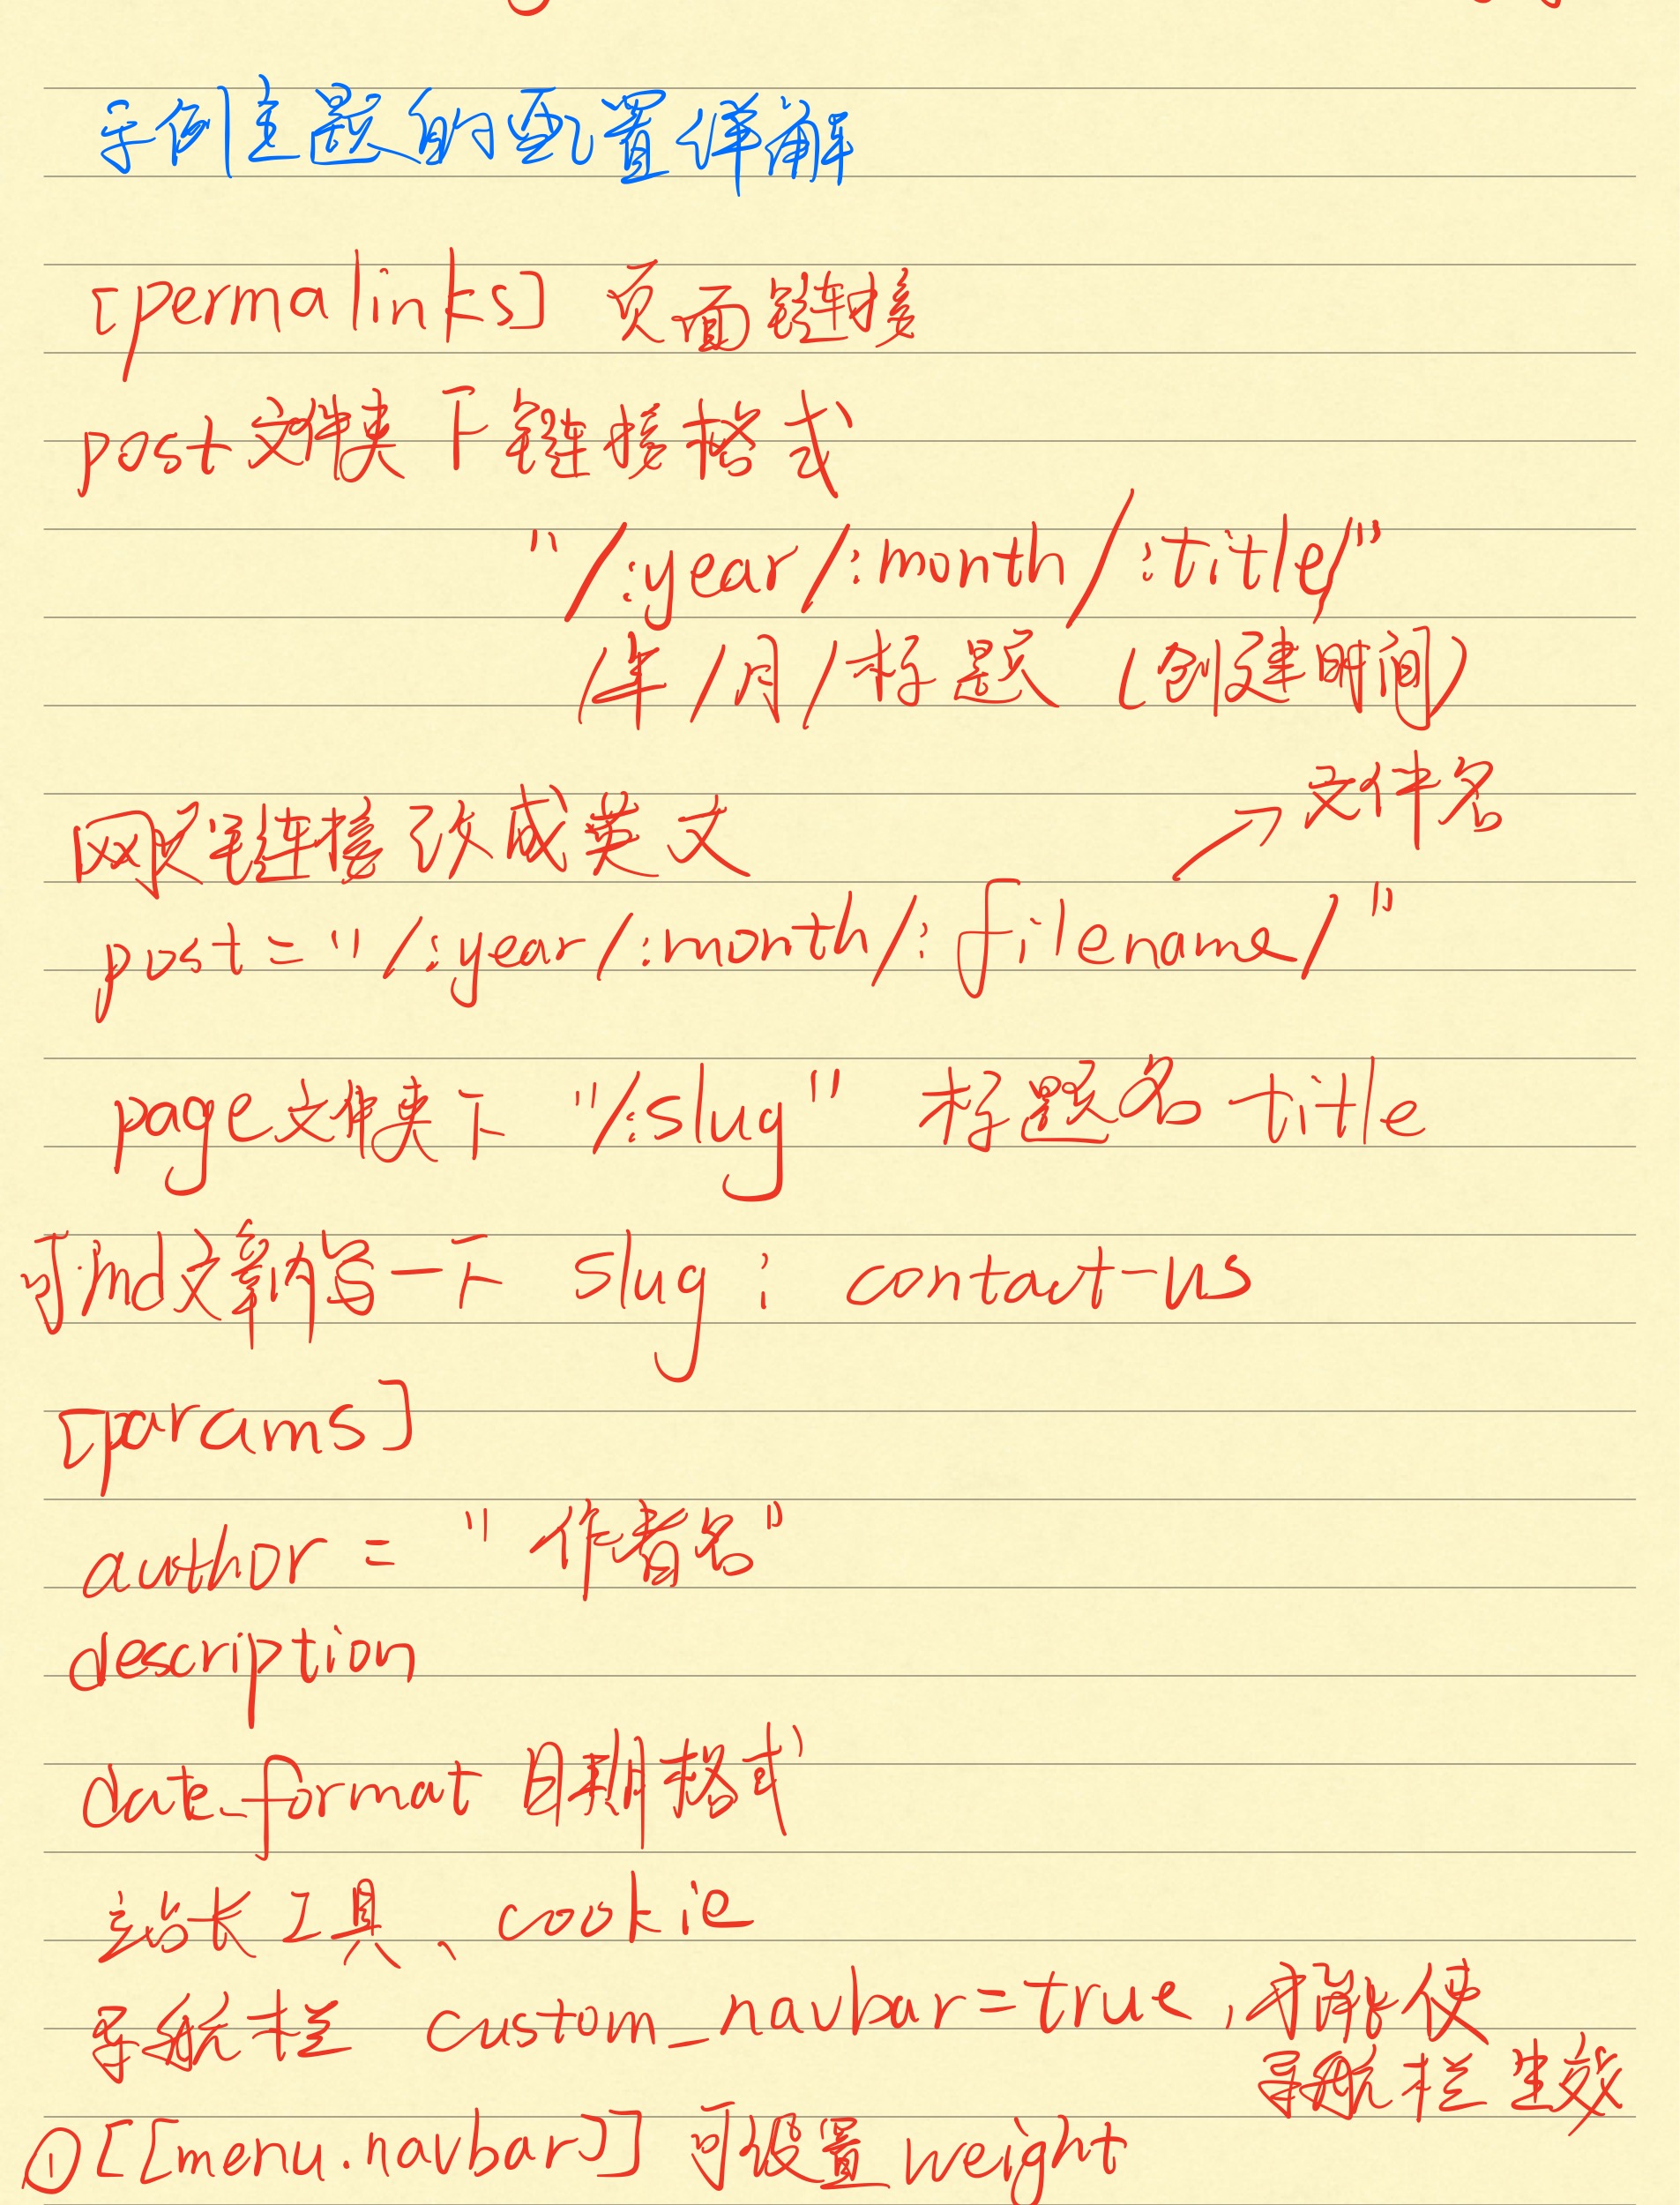 示例主题的配置详解
[permalinks] 页面链接
post文件夹下链接格式
"/:year/:month/:title/"
/年/月/标题 (创建时间)
文件名
网页链接改成英文
post="/:year/:month/:filename/"
page文件夹下 "/:slug" 标题名 title
可.md文章内写一下 slug: contact-us
[params]
author = "作者名"
description
date_format 日期格式
站长工具、cookie
导航栏 custom_navbar=true,才能使
导航栏生效
①[[menu.navbar]] 可设置weight